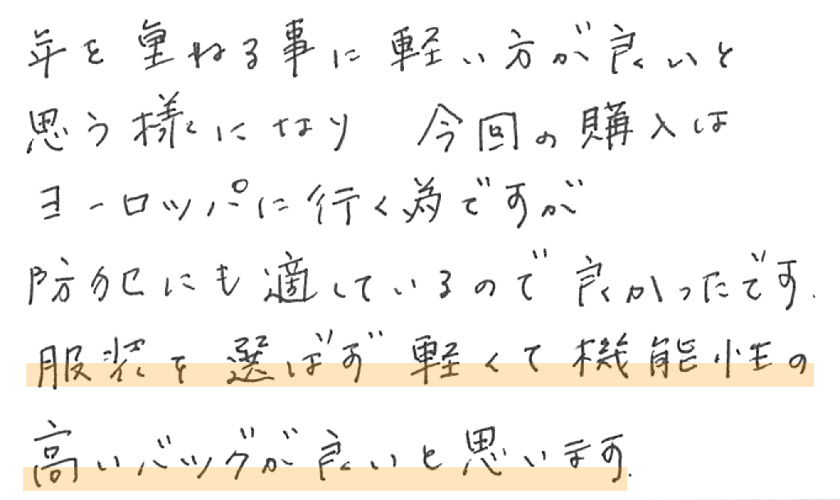 年を重ねる事に軽い方が良いと
思う様になり 今回の購入は
ヨーロッパに行く為ですが
防犯にも適しているので良かったです.
服装を選ばず軽くて機能性の
高いバッグが良いと思います.